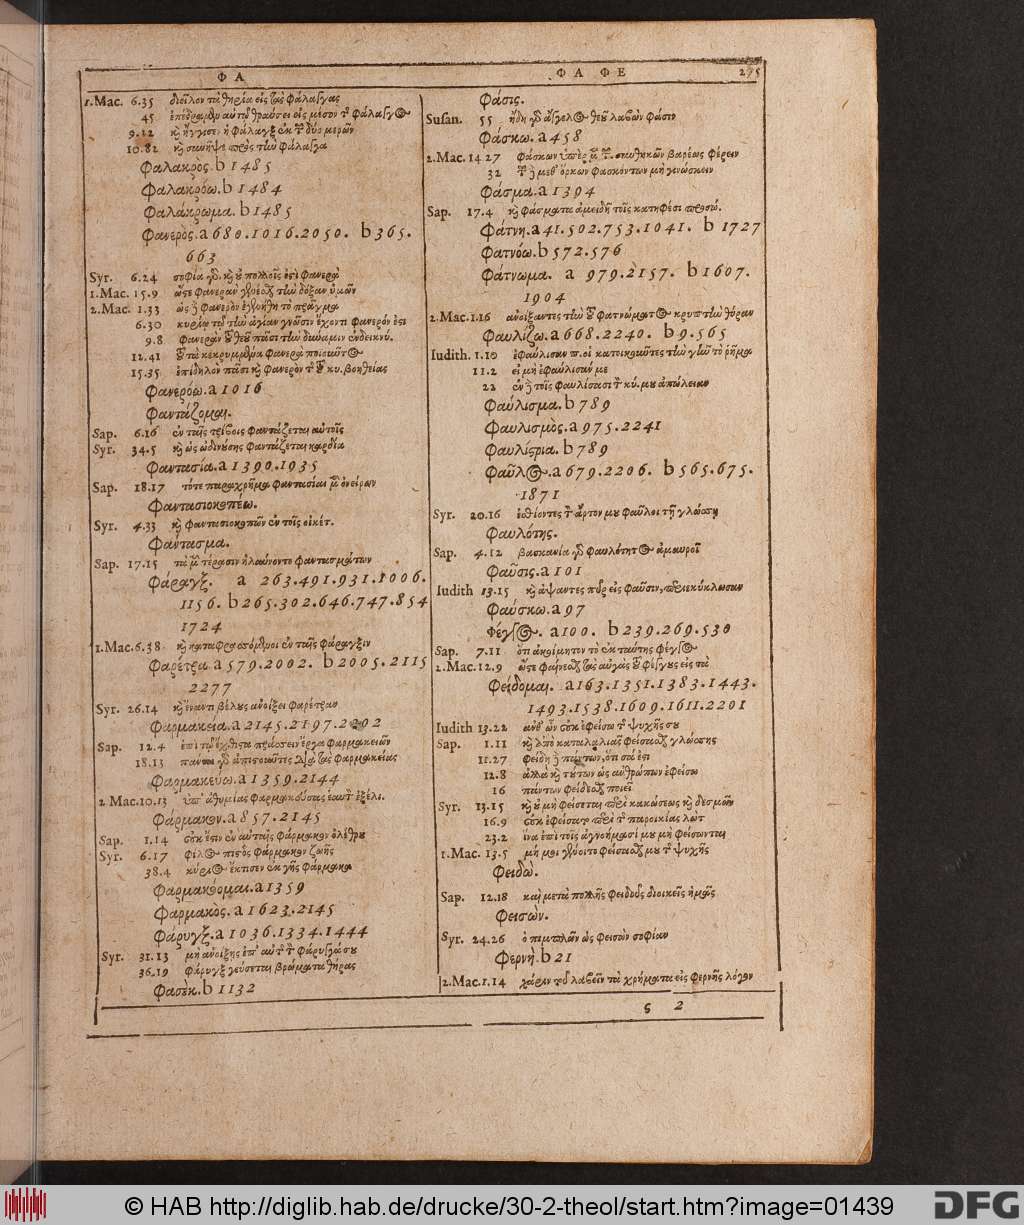 Φ Α
Φ Α Φ Ε 275
1.Mac. 6.35 διεῖλον τὰ θηρία εἰς τὰς φάλαγγας
45 ἐπέδραμεν αὐτῷ θράσει εἰς μέσον τ φάλαγγος
9.12 καὶ ἤγγισεν ἡ φάλαγξ ἐκ τ δύο μερῶν
10.82 καὶ συνῆψε πρὸς τὴν φάλαγγα
Φαλακρὸς. b 1485
Φαλακρόω. b 1484
Φαλάκρωμα. b 1485
Φανερὸς. a 680.1016.2050. b 365.
663
Syr. 6.24 σοφία καὶ οὐ πολλοῖς ἐστὶ φανερὰ
1.Mac. 15.9 ὥστε φανερὰν γενέσθαι τὴν δόξαν ὑμῶν
2.Mac. 1.33 ὡς δὲ φανερὸν ἐγενήθη τὸ πρᾶγμα
6.30 κυρίῳ τῷ τὴν ἁγίαν γνῶσιν ἔχοντι φανερόν ἐστι
9.8 φανερὰν τοῦ θεοῦ πᾶσι τὴν δύναμιν ἐνδεικνύ.
12.41 τοῦ τὰ κεκρυμμένα φανερὰ ποιοῦντος
15.35 ἐπίδηλον πᾶσι καὶ φανερὸν τ τοῦ κυ. βοηθείας
Φανερόω. a 1016
Φαντάζομαι.
Sap. 6.16 ἐν ταῖς τρίβοις φαντάζεται αὐτοῖς
Syr. 34.5 καὶ ὡς ὠδινούσης φαντάζεται καρδία
Φαντασία. a 1390.1935
Sap. 18.17 τότε παραχρῆμα φαντασίαι μ ὀνείρων
Φαντασιοκοπέω.
Syr. 4.33 καὶ φαντασιοκοπῶν ἐν τοῖς οἰκέτ.
Φάντασμα.
Sap. 17.15 τὰ μ τέρασιν ἠλαύνοντο φαντασμάτων
Φάραγξ. a 263.491.931.1006.
1156. b 265.302.646.747.854
1724
1.Mac. 6.38 καὶ καταφρασσόμενοι ἐν ταῖς φάραγξιν
Φαρέτρα. a 579.2002. b 2005.2115
2277
Syr. 26.14 καὶ ἔναντι βέλους ἀνοίξει φαρέτραν
Φαρμακεία. a 2145.2197.2202
Sap. 12.4 ἐπὶ τῷ ἔχθιστα πράσσειν ἔργα φαρμακειῶν
18.13 πάντα γὰρ ἀπιστοῦντες διὰ τὰς φαρμακείας
Φαρμακεύω. a 1359.2144
2 Mac. 10.13 ὑπ' ἀθυμίας φαρμακεύσας ἑαυτὸν ἐξέλι.
Φάρμακον. a 857.2145
Sap. 1.14 οὐκ ἔστιν ἐν αὐταῖς φάρμακον ὀλέθρου
Syr. 6.17 φίλος πιστὸς φάρμακον ζωῆς
38.4 κύριος ἔκτισεν ἐκ γῆς φάρμακα
Φαρμακόομαι. a 1359
Φαρμακὸς. a 1623.2145
Φάρυγξ. a 1036.1334.1444
Syr. 31.13 μὴ ἀνοίξῃς ἐπ' αὐτ τ φάρυγγά σου
36.19 φάρυγξ γεύσεται βρώματα θήρας
Φασὲκ. b 1132
Φάσις.
Susan. 55 ἤδη γὰρ ἄγγελος θεοῦ λαβὼν φάσιν
Φάσκω. a 458
2.Mac. 14 27 φάσκων ὑπὲρ μ τ συνθηκῶν βαρέως φέρειν
32 τ δὲ μεθ' ὅρκων φασκόντων μὴ γινώσκειν
Φάσμα. a 1394
Sap. 17.4 καὶ φάσματα ἀμειδῆ τοῖς κατηφέσι προσώ.
Φάτνη. a 41.502.753.1041. b 1727
Φατνόω. b 572.576
Φάτνωμα. a 979.2157. b 1607.
1904
2.Mac. 1.16 ἀνοίξαντες τὴν τοῦ φατνώματος κρυπτὴν θύραν
Φαυλίζω. a 668.2240. b 9.565
Iudith. 1.10 ἐφαύλισαν π. οἱ κατοικοῦντες τὴν γῆν τὸ ῥῆμα
11.2 εἰ μὴ ἐφαύλισάν με
22 ἐν δὲ τοῖς φαυλίσασι τ κύ. μου ἀπώλειαν
Φαύλισμα. b 789
Φαυλισμὸς. a 975.2241
Φαυλίστρια. b 789
Φαῦλος. a 679.2206. b 565.675.
1871
Syr. 20.16 ἐσθίοντες τ ἄρτον μου φαῦλοι τῇ γλώσσῃ
Φαυλότης.
Sap. 4.12 βασκανία γὰρ φαυλότητος ἀμαυροῖ
Φαῦσις. a 101
Iudith 13.15 καὶ ἅψαντες πῦρ εἰς φαῦσιν, περιεκύκλωσαν
Φαύσκω. a 97
Φέγγος. a 100. b 239.269.530
Sap. 7.11 ὅτι ἀκοίμητον τὸ ἐκ ταύτης φέγγος
2.Mac. 12.9 ὥστε φαίνεσθαι τὰς αὐγὰς τοῦ φέγγους εἰς τὰ
Φείδομαι. a 163.1351.1383.1443.
1493.1538.1609.1611.2201
Iudith 13.22 ἀνθ' ὧν οὐκ ἐφείσω τ ψυχῆς σου
Sap. 1.11 καὶ ἀπὸ καταλαλιᾶς φείσασθε γλώσσης
11.27 φείδῃ δὲ πάντων, ὅτι σά ἐστι
12.8 ἀλλὰ καὶ τούτων ὡς ἀνθρώπων ἐφείσω
16 πάντων φείδεσθαι ποιεῖ
Syr. 13.15 καὶ οὐ μὴ φείσεται περὶ κακώσεως καὶ δεσμῶν
16.9 οὐκ ἐφείσατο περὶ τ παροικίας λωτ
23.2 ἵνα ἐπὶ τοῖς ἀγνοήμασί μου μὴ φείσωνται
1.Mac. 13.5 μή μοι γένοιτο φείσασθαί μου τ ψυχῆς
Φειδώ.
Sap. 12.18 καὶ μετὰ πολλῆς φειδοῦς διοικεῖς ἡμᾶς
Φεισών.
Syr. 24.26 ὁ πιμπλῶν ὡς φεισὼν σοφίαν
Φερνὴ. b 21
2.Mac. 1.14 χάριν τοῦ λαβεῖν τὰ χρήματα εἰς φερνῆς λόγον
ς 2
© HAB http://diglib.hab.de/drucke/30-2-theol/start.htm?image=01439
DFG